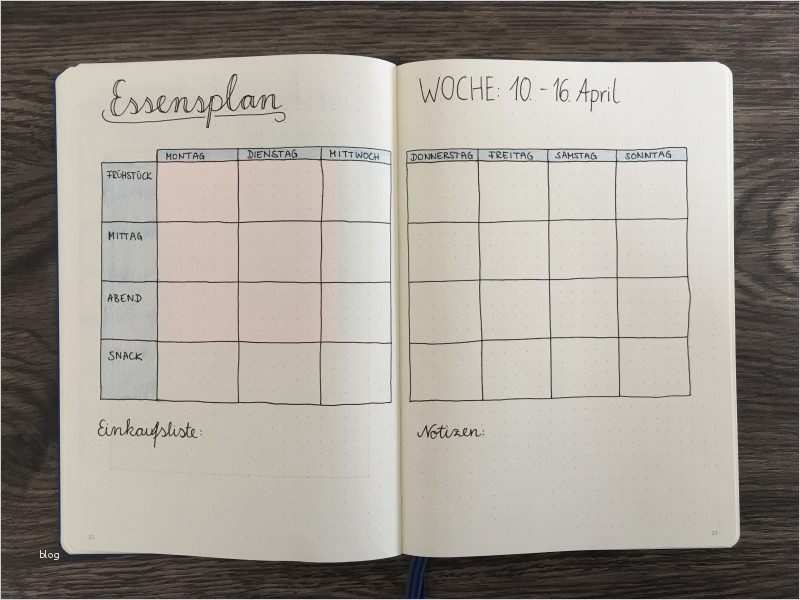 Essensplan
WOCHE: 10. - 16. April
MONTAG DIENSTAG MITTWOCH DONNERSTAG FREITAG SAMSTAG SONNTAG
FRÜHSTÜCK
MITTAG
ABEND
SNACK
Einkaufsliste:
Notizen:
blog